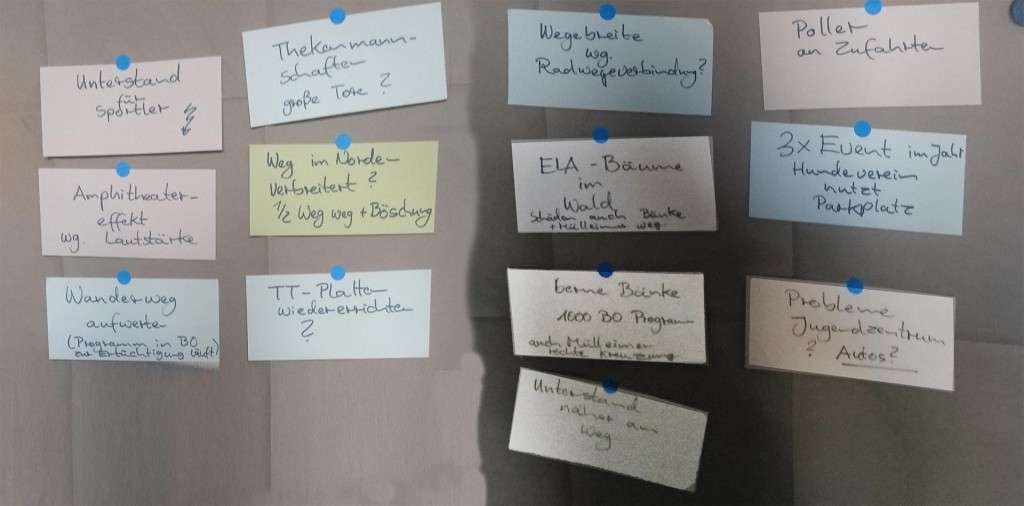 Unterstand
für
Sportler
Amphitheater-
effekt
wg. Lautstärke
Wanderweg
aufwerten
(Programm in BO
zur Ertüchtigung läuft)
Thekenmann-
schaften
große Tore ?
Weg im Norden
verbreitert ?
1/2 Weg weg + Böschung
TT-Platten
wiedererrichten
?
Wegebreite
wg.
Radwegeverbindung?
ELA - Bäume
im
Wald
Schäden auch Bänke
+ Mülleimer weg
Bänke
1000 BO Programm
auch Mülleimer
rechte Kreuzung
Unterstand
näher am
Weg
Poller
an Zufahrten
3x Event im Jahr
Hundeverein
nutzt
Parkplatz
Probleme
Jugendzentrum
? Autos?